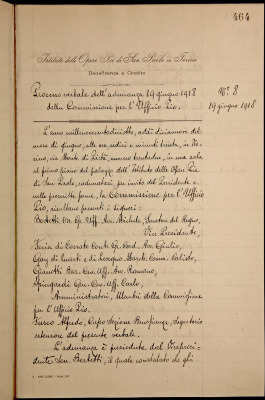 464
Istituto delle Opere Pie di San Paolo in Torino
Beneficenza e Credito
Processo verbale dell'adunanza 19 giugno 1918
della Commissione per l'Ufficio Pio.
N.º 8
19 giugno 1918
L'anno millenovecentodiciotto, addì diciannove del
mese di giugno, alle ore sedici e minuti trenta, in To-
rino, via Monte di Pietà, numero trentadue, in una sala
al primo piano del palazzo dell'Istituto delle Opere Pie
di San Paolo, radunatasi, per invito del Presidente e
nelle prescritte forme, la Commissione per l'Ufficio
Pio, risultano presenti i signori:
Bertetti Gr. Cr. Uff. Avv. Michele, Senatore del Regno,
Vice Presidente,
Feria di Cossato Conte Cav. Cord. Avv.
Gay di Quarti e di Lesegno March. Comm. Calisto,
Gianotti Bar. Cav. Uff. Avv. Romano,
Spingardi Gen. Cav. Uff. Carlo,
Amministratori, Membri della Commissione
per l'Ufficio Pio.
Fasco Alfredo, Capo Sezione Beneficenza, Segretario
estensore del presente verbale.
L'adunanza è presieduta dal Vicepresi-
dente Sen. Bertetti, il quale constatato che gli